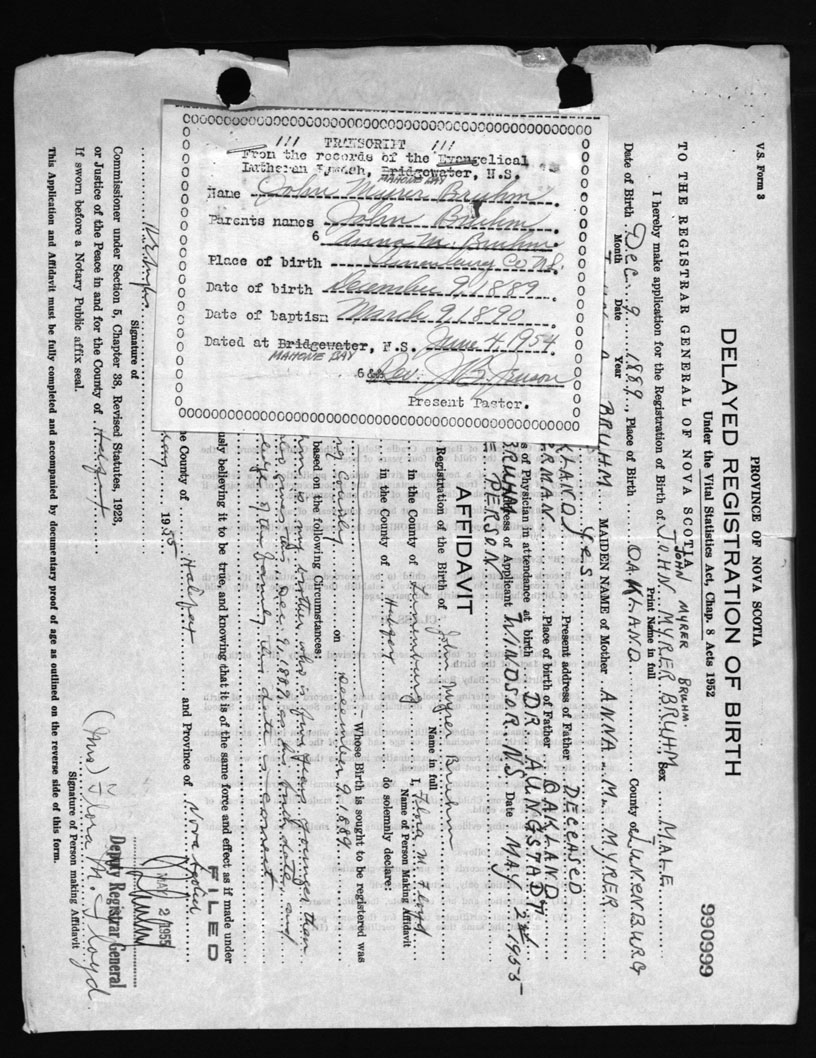 TRANSCRIPT
From the records of the Evangelical
Lutheran Parish, Bridgewater, N.S.
MAHONE BAY
Name John Myrer Bruhm
Parents names John Bruhm
& Anna M. Bruhm
Place of birth Lunenburg Co. N.S.
Date of birth December 9, 1889
Date of baptism March 9, 1890
Dated at Bridgewater, N.S. June 4, 1954
MAHONE BAY
Rev.
Present Pastor.
V.S. Form 3
PROVINCE OF NOVA SCOTIA
DELAYED REGISTRATION OF BIRTH
Under the Vital Statistics Act, Chap. 8 Acts 1952
990999
TO THE REGISTRAR GENERAL OF NOVA SCOTIA
JOHN MYRER BRUHM.
I hereby make application for the Registration of Birth of JOHN MYRER BRUHM Sex MALE
Print Name in full
Date of Birth Dec. 9 1889, Place of Birth OAKLAND County of LUNENBURG
Month Date Year
BRUHM MAIDEN NAME of Mother ANNA M. MYRER
YES Present address of Father DECEASED
Place of birth of Father OAKLAND
of Physician in attendance at birth DR. AUNGSTADT
Address of Applicant WINDSOR N.S. Date MAY 2nd 1955
PERSON
AFFIDAVIT
Registration of the Birth of John Myrer Bruhm
Name in full
in the County of Lunenburg I, Flora M. Floyd
Name of Person Making Affidavit
in the County of do solemnly declare:
Whose Birth is sought to be registered was
County on December 9, 1889
based on the following Circumstances:
him is my brother who is five years younger than
Dec. 9, 1889 as his birth date and
of the family this date is correct
usly believing it to be true, and knowing that it is of the same force and effect as if made under
FILED
the County of Halifax and Province of Nova Scotia
1955
MAY 2 1955
Deputy Registrar General
Signature of
Commissioner under Section 5, Chapter 38, Revised Statutes, 1923,
or Justice of the Peace in and for the County of
If sworn before a Notary Public affix seal.
(Mrs) Flora M. Floyd
Signature of Person making Affidavit
This Application and Affidavit must be fully completed and accompanied by documentary proof of age as outlined on the reverse side of this form.